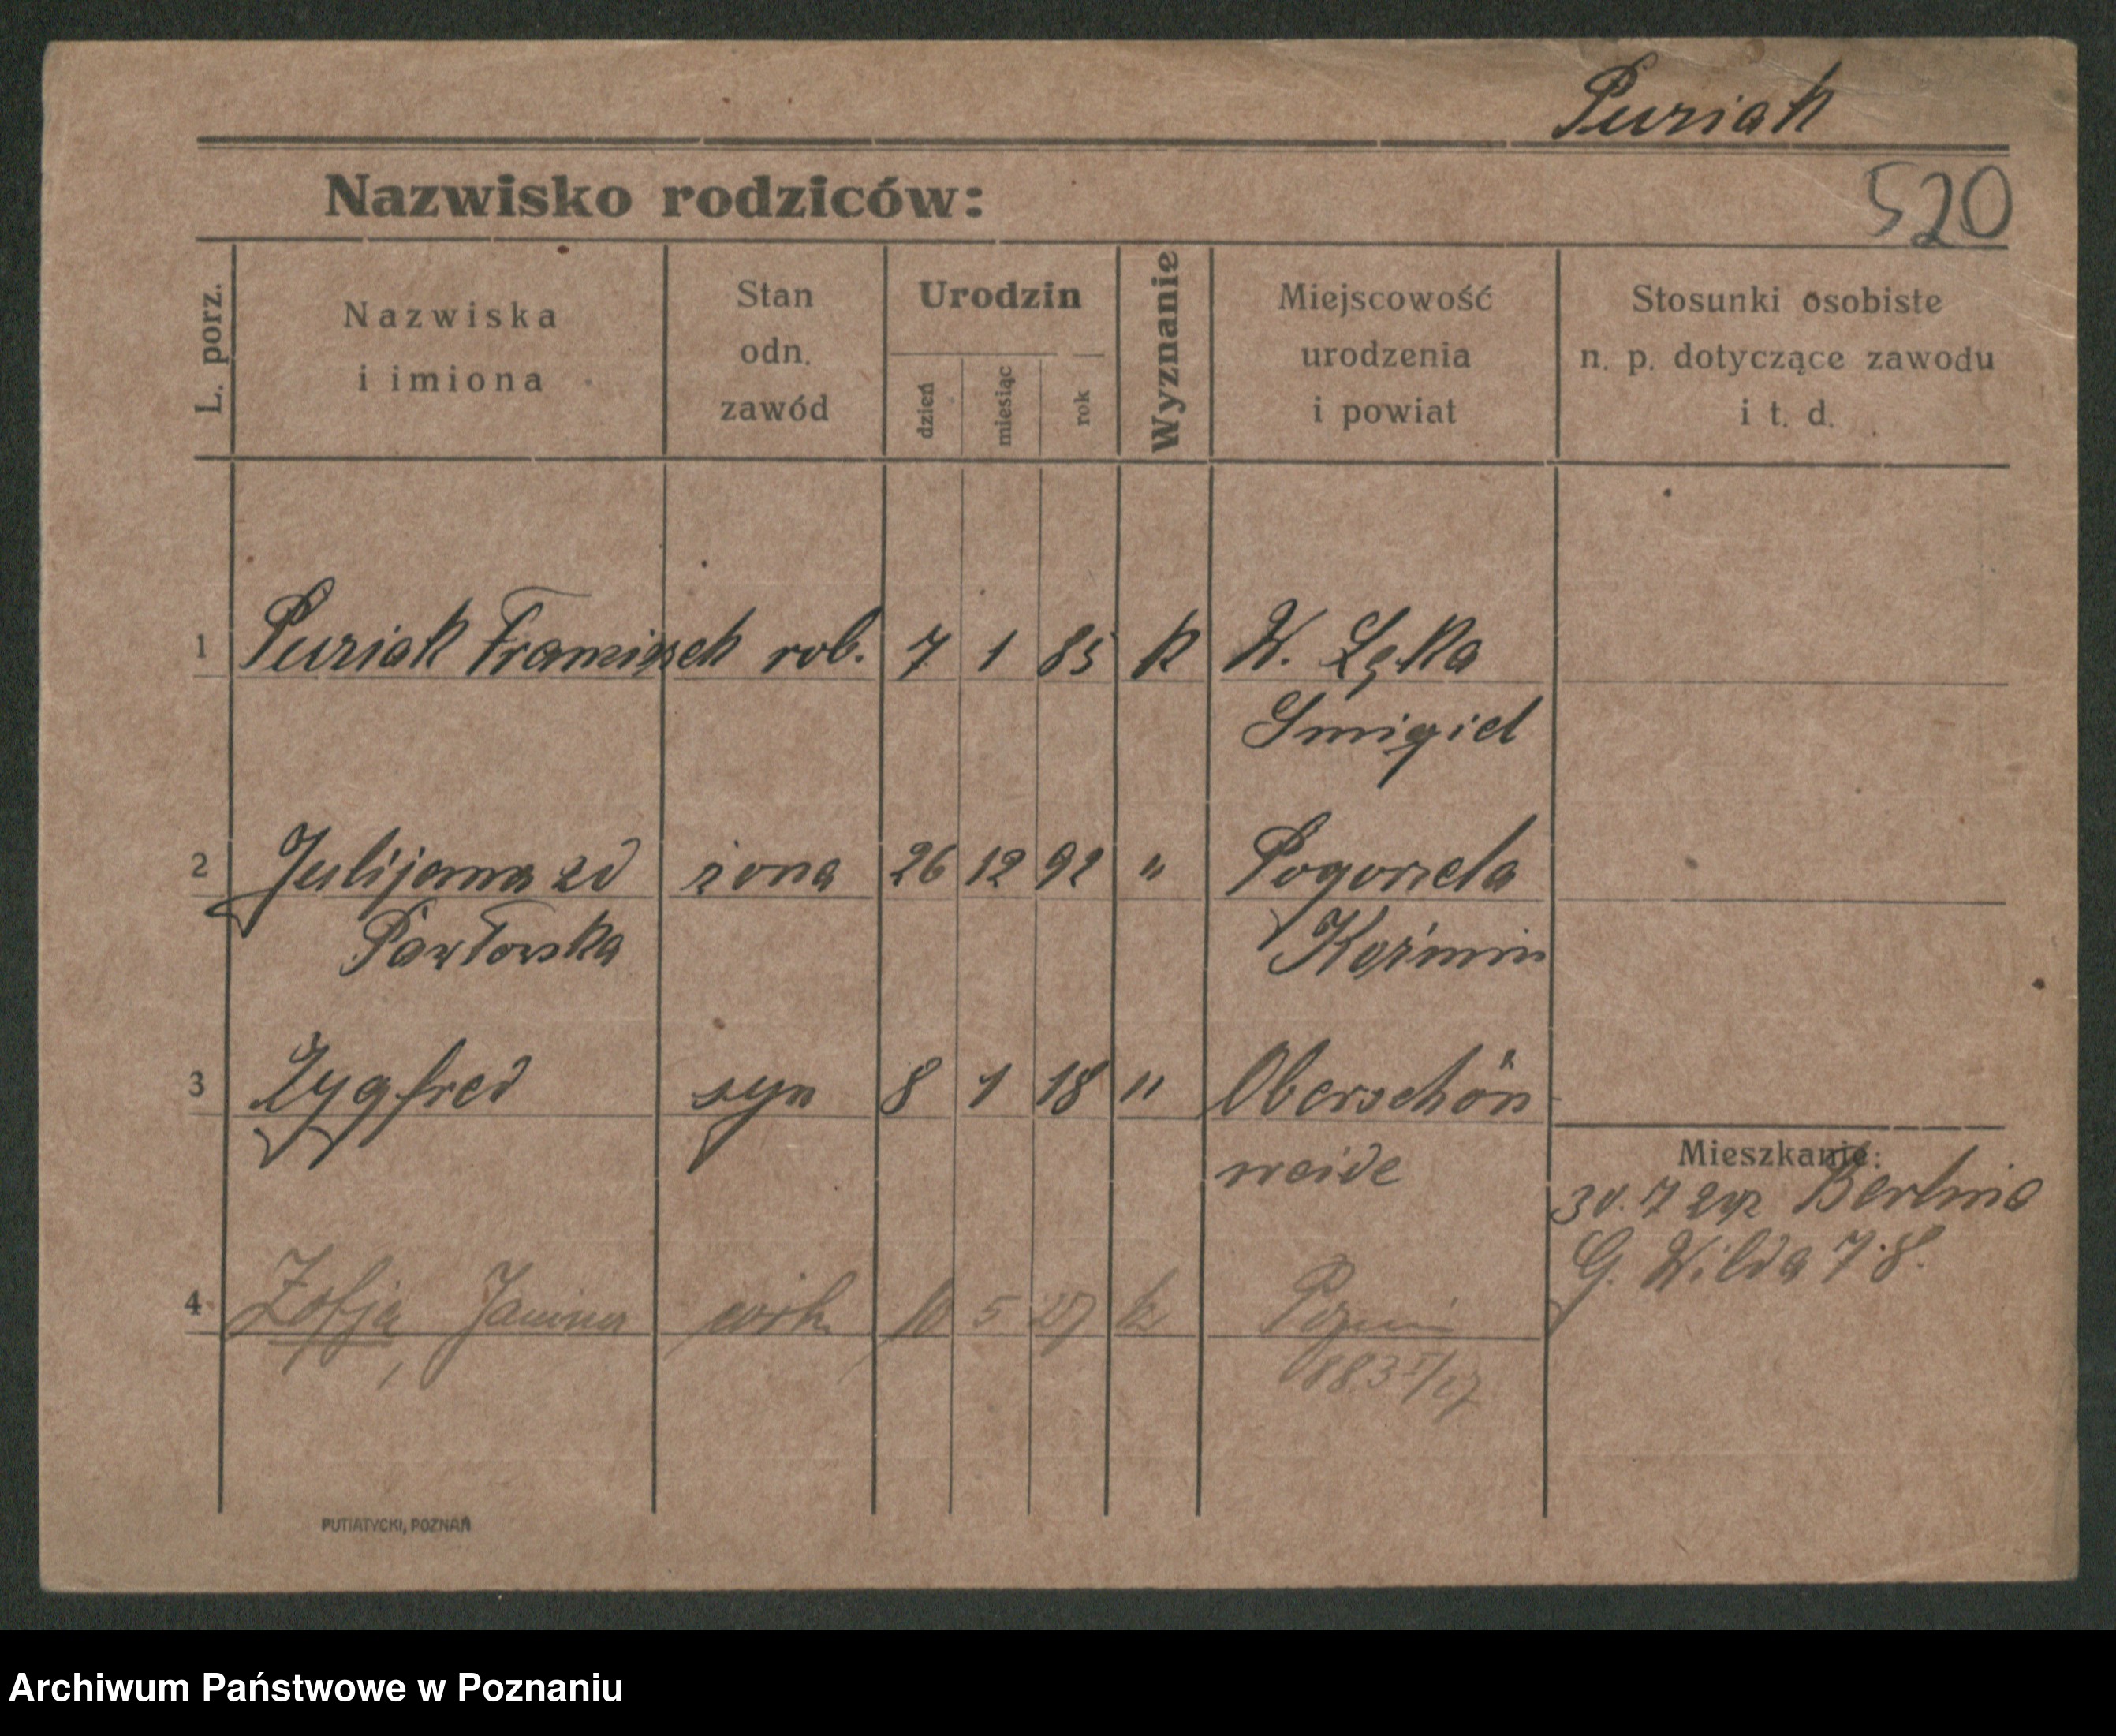 Puziak
Nazwisko rodziców:
520
L. porz.
Nazwiska
i imiona
Stan
odn.
zawód
Urodzin
dzień
miesiąc
rok
Wyznanie
Miejscowość
urodzenia
i powiat
Stosunki osobiste
n. p. dotyczące zawodu
i t. d.
1 Puziak Franciszek rob. 7 1 85 k W. Łęka
Smigiel
2 Julijanna zd żona 26 12 92 " Pogorzela
Pawłowska Koźmin
3 Zygfred syn 8 1 18 " Oberschön
weide
Mieszkanie:
30. 7 Berlina
G. Wilda 78.
4 Zofja, Janina córk. 10 5 27 k Poznań
883 V/27
PUTIATYCKI, POZNAŃ
Archiwum Państwowe w Poznaniu